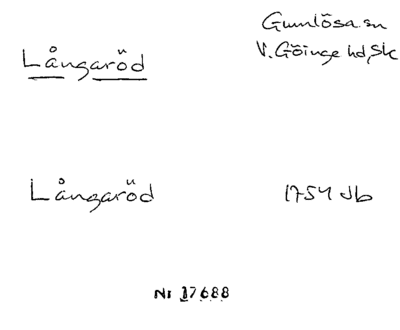 Gumlösa sn
Långaröd
V. Göinge hd, Sk
Långaröd
1754 Jb
Nr 17688